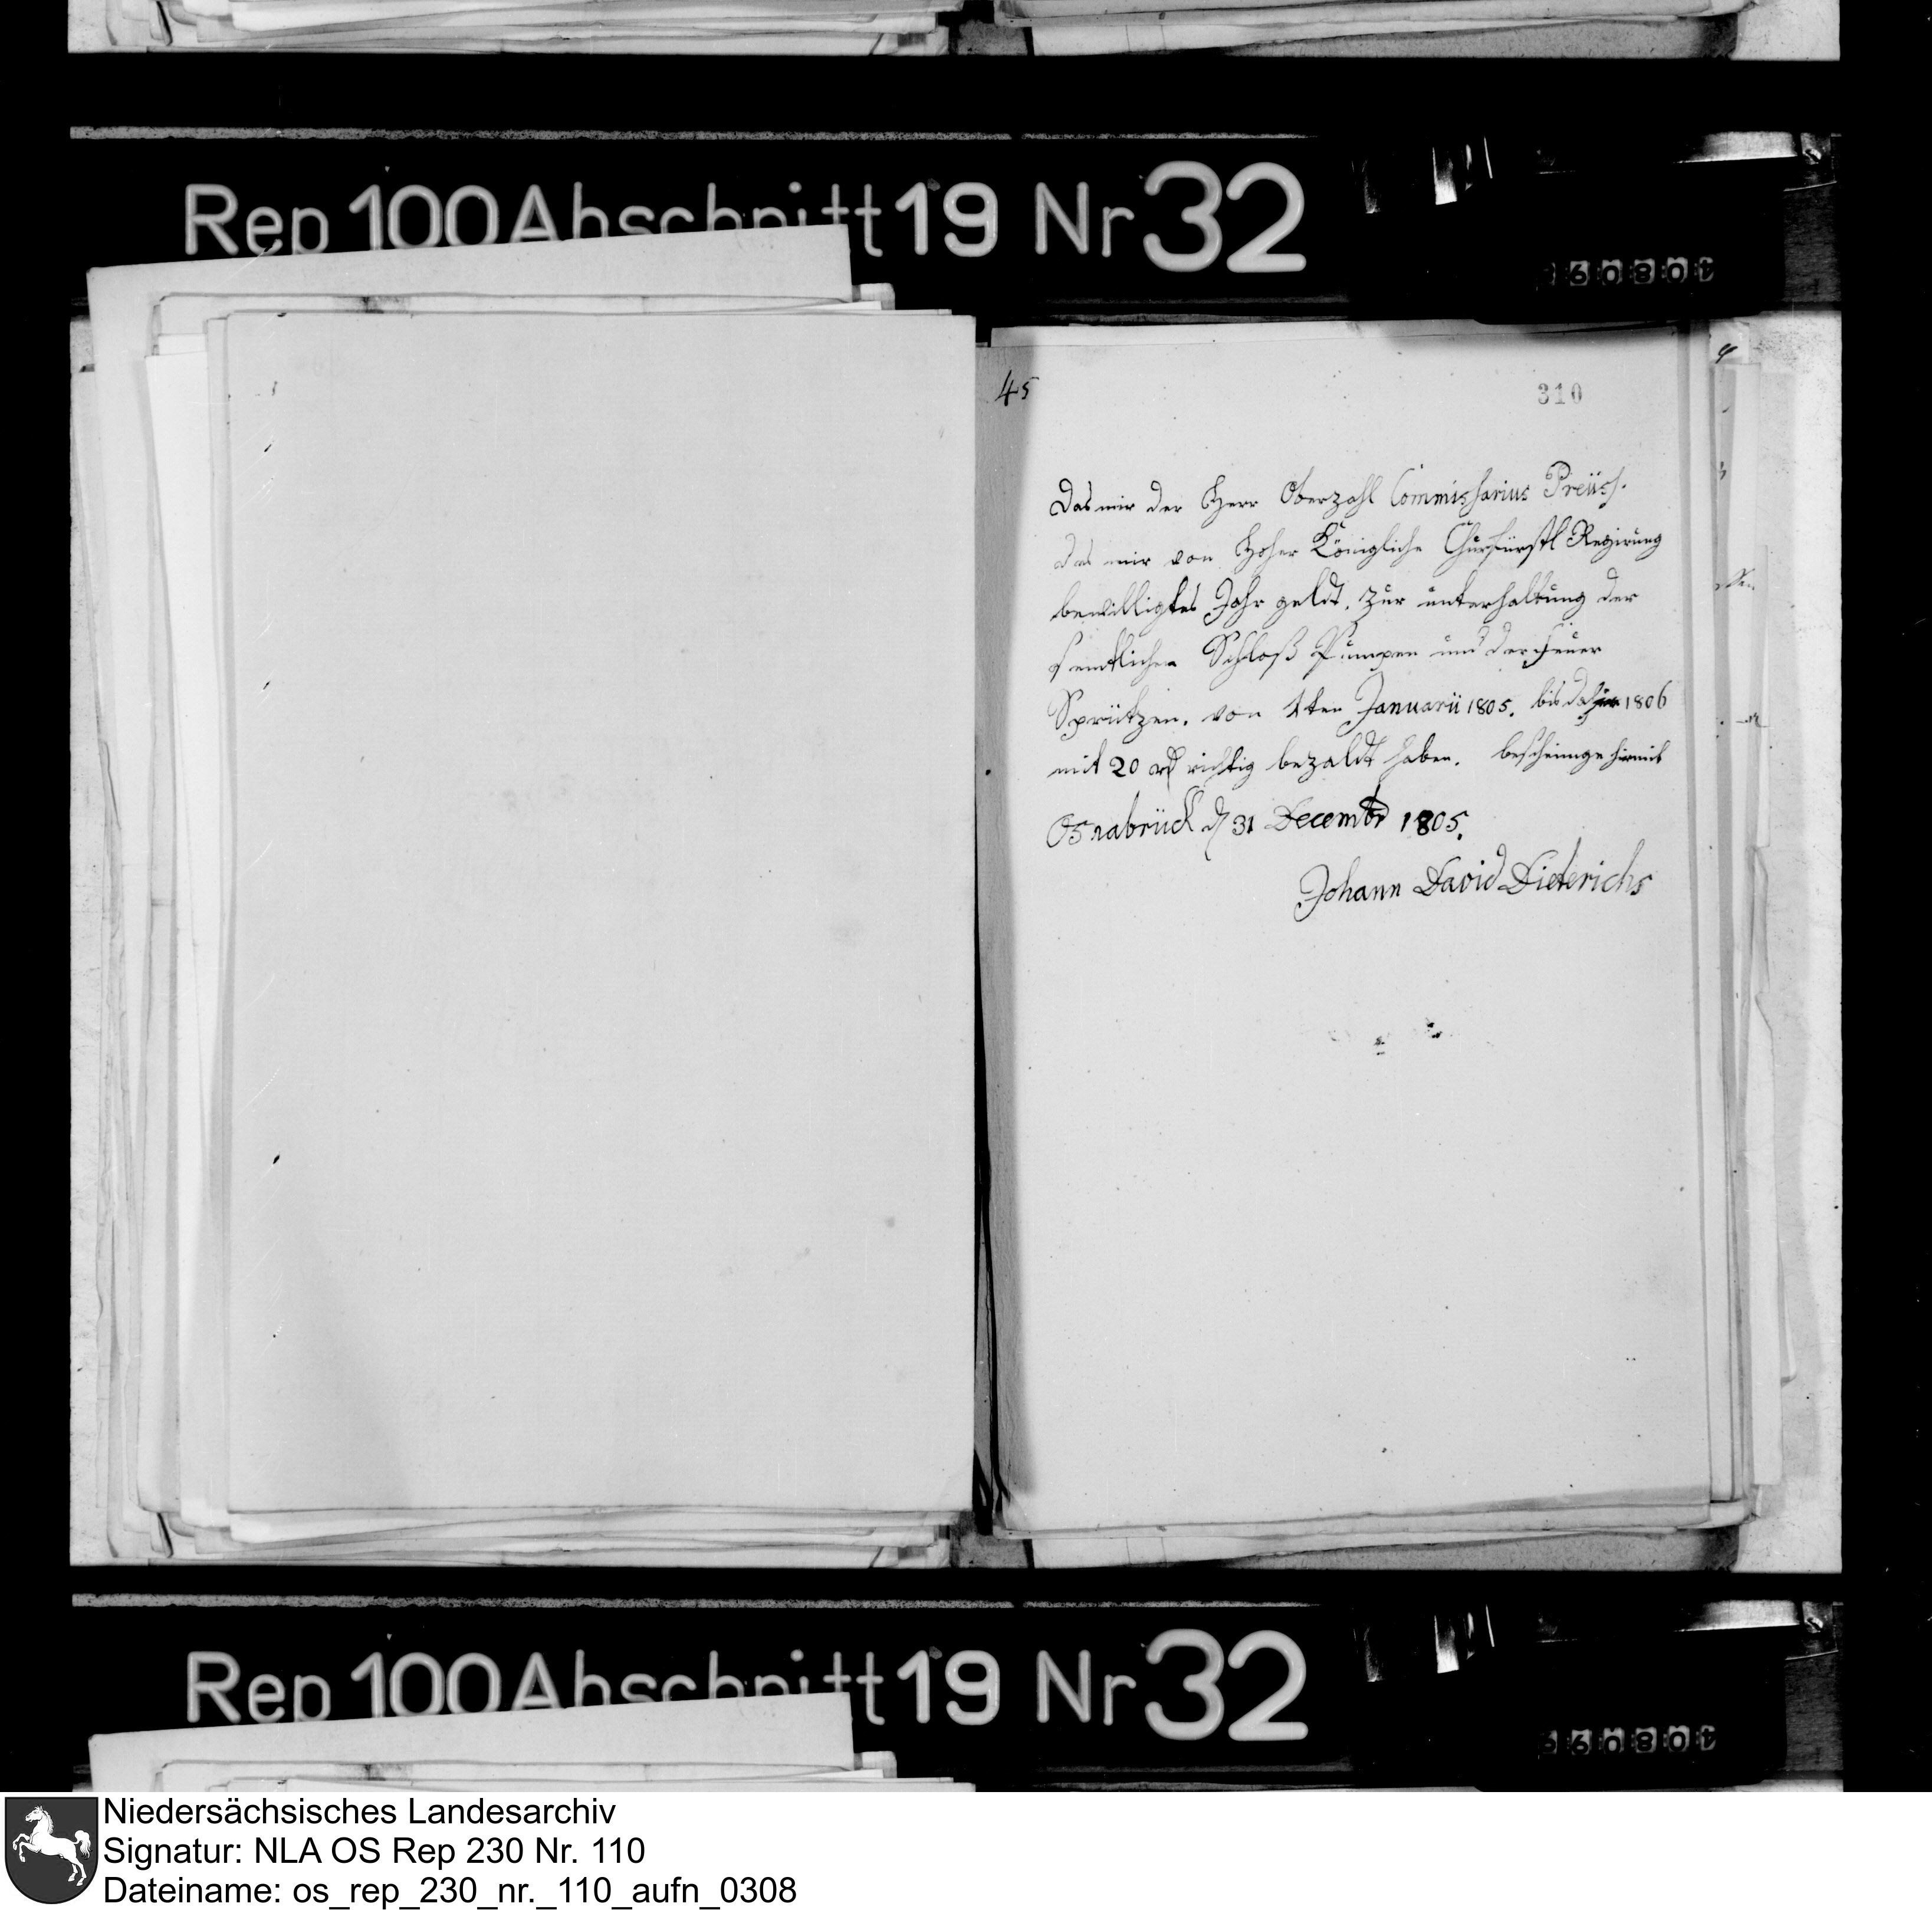 Rep 100 Abschnitt 19 Nr 32
45
310
Das mir der Herr Oberzahl Commissarius Preüss.
das mir von Hoher Königliche Churfürstl Regirung
bewilligtes Jahr geldt. zur unterhaltung der
semtlichen Schloß Pumpen und der Feuer
Sprützen. von 1ten Januarii 1805. bis dahin 1806
mit 20 rth richtig bezaldt haben. bescheinige hiermit
Osnabrück d 31 Decembr 1805.
Johann David Dieterichs
Rep 100 Abschnitt 19 Nr 32
Niedersächsisches Landesarchiv
Signatur: NLA OS Rep 230 Nr. 110
Dateiname: os_rep_230_nr._110_aufn_0308